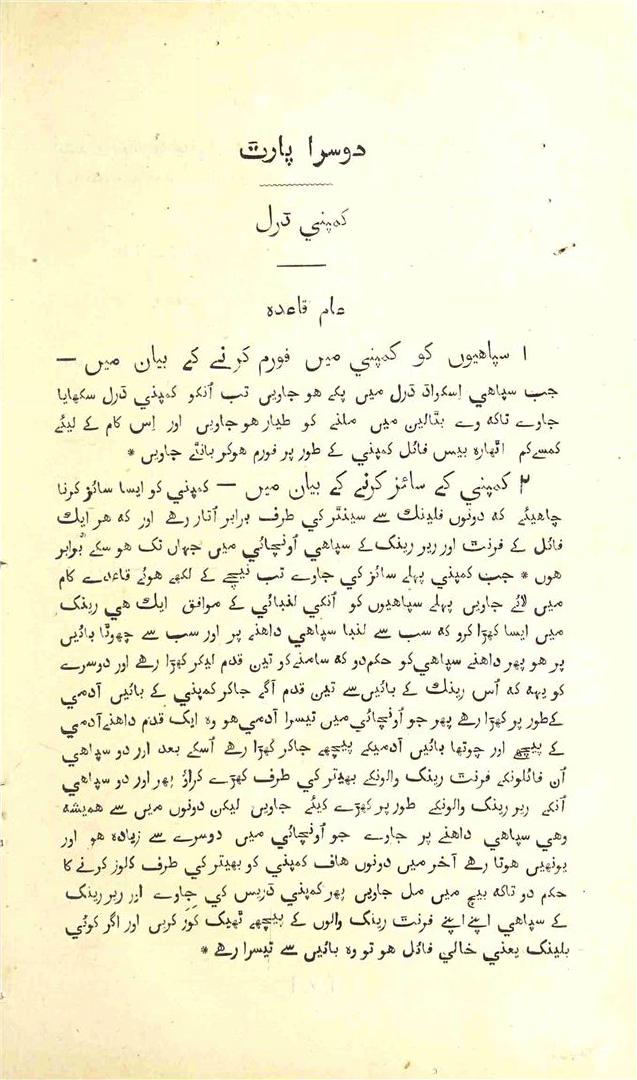 دوسرا پارٹ
کمپني ڈرل
عام قاعده
۱ سپاهیوں کو کمپني میں فورم کرنے کے بیان میں —
جب سپاهي اِسکواڈ ڈرل میں پکے هو جاویں تب اُنکو کمپني ڈرل سکھایا
جاوے تاکه وے بٹالین میں ملنے کو طیار هو جاویں اور اِس کام کے لیئے
کمسےکم اٹھاره بیس فائل کمپني کے طور پر فورم هوکر بانٹے جاویں *
۲ کمپني کے سائز کرنے کے بیان میں — کمپني کو ایسا سائز کرنا
چاهیئے که دونوں فلینک سے سینٹر کي طرف برابر اُتار رهے اور که هر ایک
فائل کے فرنٹ اور ریر رینک کے سپاهي اُونچائي میں جہاں تک هو سکے برابر
هوں * جب کمپني پہلے سائز کي جاوے تب نیچے کے لکھے هوئے قاعدے کام
میں لائے جاویں پہلے سپاهیوں کو اُنکي لنبائي کے موافق ایک هي رینک
میں ایسا کھڑا کرو که سب سے لنبا سپاهي داهنے پر اور سب سے چھوٹا بائیں
پر هو پھر داهنے سپاهي کو حکم دو که سامنے کو تین قدم لیکر کھڑا رهے اور دوسرے
کو یہه که اُس رینک کے بائیں سے تین قدم آگے جاکر کمپني کے بائیں آدمي
کے طور پر کھڑا رهے پھر جو اُونچائي میں تیسرا آدمي هو وه ایک قدم داهنے آدمي
کے پیچھے اور چوتھا بائیں آدمیکے پیچھے جاکر کھڑا رهے اُسکے بعد اور دو سپاهي
اُن فائلونکے فرنٹ رینک والونکے بھیتر کي طرف کھڑے کراؤ پھر اور دو سپاهي
اُنکے ریر رینک والونکے طور پر کھڑے کیئے جاویں لیکن دونوں میں سے همیشه
وهي سپاهي داهنے پر جاوے جو اُونچائي میں دوسرے سے زیاده هو اور
یونهیں هوتا رهے آخر میں دونوں هاف کمپني کو بھیتر کي طرف کلوز کرنے کا
حکم دو تاکه بیچ میں مل جاویں پھر کمپني ڈریس کي جاوے اور ریر رینک
کے سپاهي اپنے اپنے فرنٹ رینک والوں کے پیچھے ٹھیک کَوَر کریں اور اگر کوئي
بلینک یعني خالي فائل هو تو وه بائیں سے تیسرا رهے *